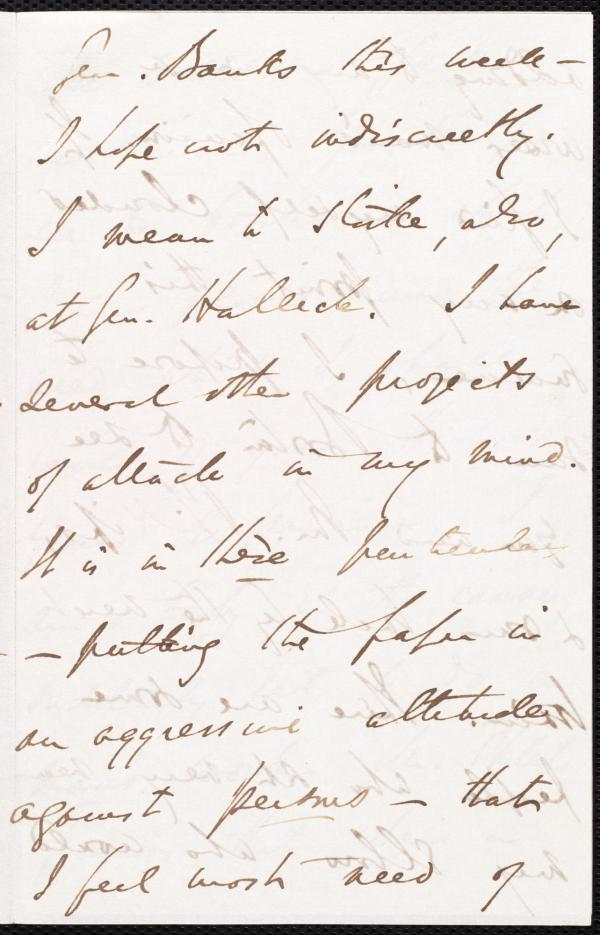 Gen. Banks this week —
I hope not indiscreetly.
I mean to strike, also,
at Gen. Halleck. I have
several other projects
of attack in my mind.
It is in these particulars
— putting the paper in
an aggressive attitude
against persons — that
I feel most need of